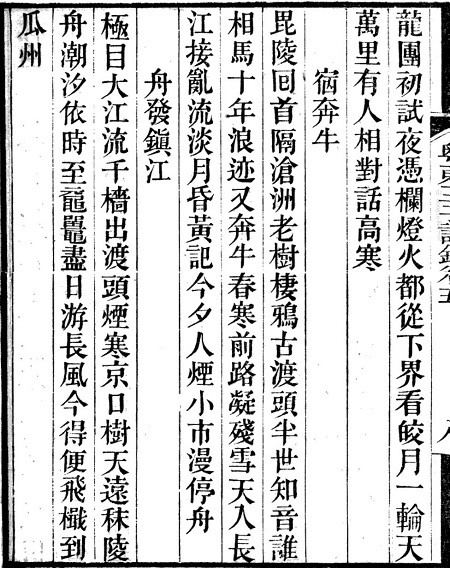 龍團初試夜憑欄燈火都從下界看皎月一輪天
萬里有人相對話高寒
宿奔牛
毘陵囘首隔滄洲老樹棲鴉古渡頭半世知音誰
相馬十年浪迹又奔牛春寒前路凝殘雪天入長
江接亂流淡月昏黃記今夕人煙小市漫停舟
舟發鎮江
極目大江流千檣出渡頭煙寒京口樹天遠秣陵
舟潮汐依時至黿鼉盡日游長風今得便飛檝到
瓜州